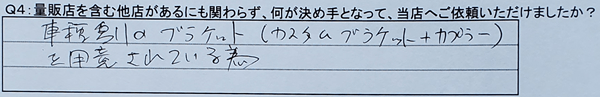 Q4:量販店を含む他店があるにも関わらず、何が決め手となって、当店へご依頼いただけましたか？
車種別のブラケット(カスタムブラケット+カプラー)
を用意されている為